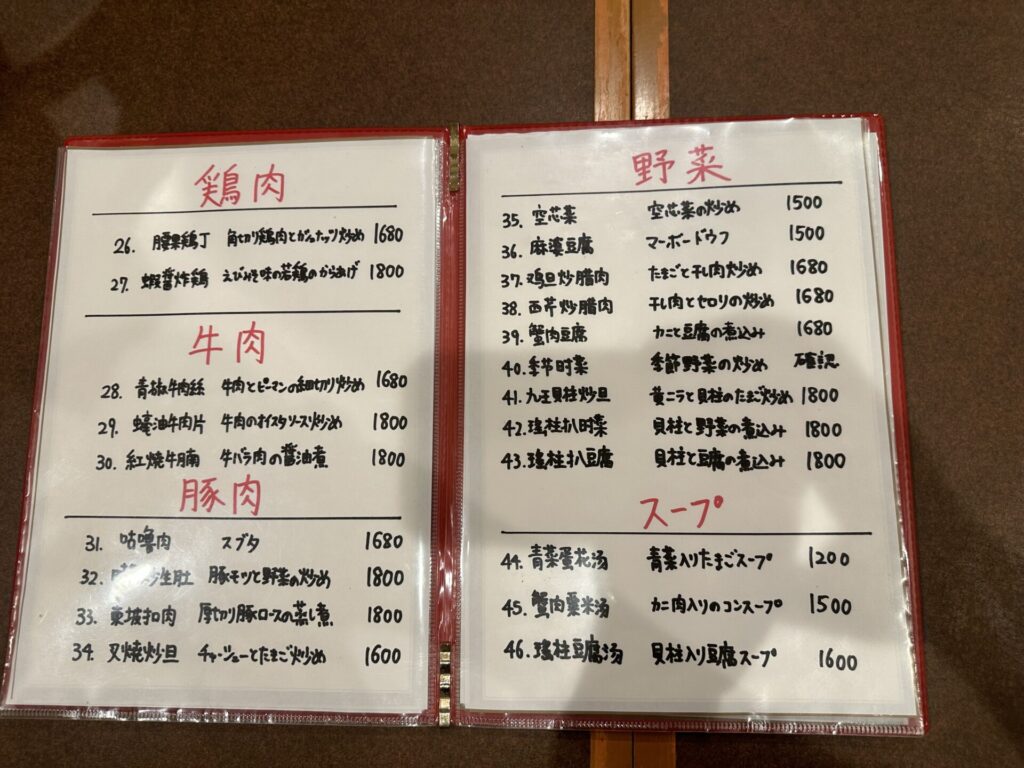 鶏肉
26. 腰果鶏丁 角切り鶏肉とカシュナッツ炒め 1680
27. 蝦醤炸鶏 えびみそ味の若鶏のからあげ 1800
牛肉
28. 青椒牛肉絲 牛肉とピーマンの細切り炒め 1680
29. 蠔油牛肉片 牛肉のオイスタソース炒め 1800
30. 紅焼牛腩 牛バラ肉の醤油煮 1800
豚肉
31. 咕嚕肉 スブタ 1680
32. 生肚 豚モツと野菜の炒め 1800
33. 東坡扣肉 厚切り豚ロースの蒸し煮 1800
34. 叉焼炒旦 チャーシューとたまご炒め 1600
野菜
35. 空芯菜 空芯菜の炒め 1500
36. 麻婆豆腐 マーボードウフ 1500
37. 鸡旦炒腊肉 たまごと干し肉炒め 1680
38. 西芹炒腊肉 干し肉とセロリの炒め 1680
39. 蟹肉豆腐 カニと豆腐の煮込み 1680
40. 季节时菜 季節野菜の炒め 確認
41. 九王貝柱炒旦 黄ニラと貝柱のたまご炒め 1800
42. 瑤柱扒时菜 貝柱と野菜の煮込み 1800
43. 瑤柱扒豆腐 貝柱と豆腐の煮込み 1800
スープ
44. 青菜蛋花汤 青菜入りたまごスープ 1200
45. 蟹肉粟米汤 カニ肉入りのコンスープ 1500
46. 瑤柱豆腐汤 貝柱入り豆腐スープ 1600